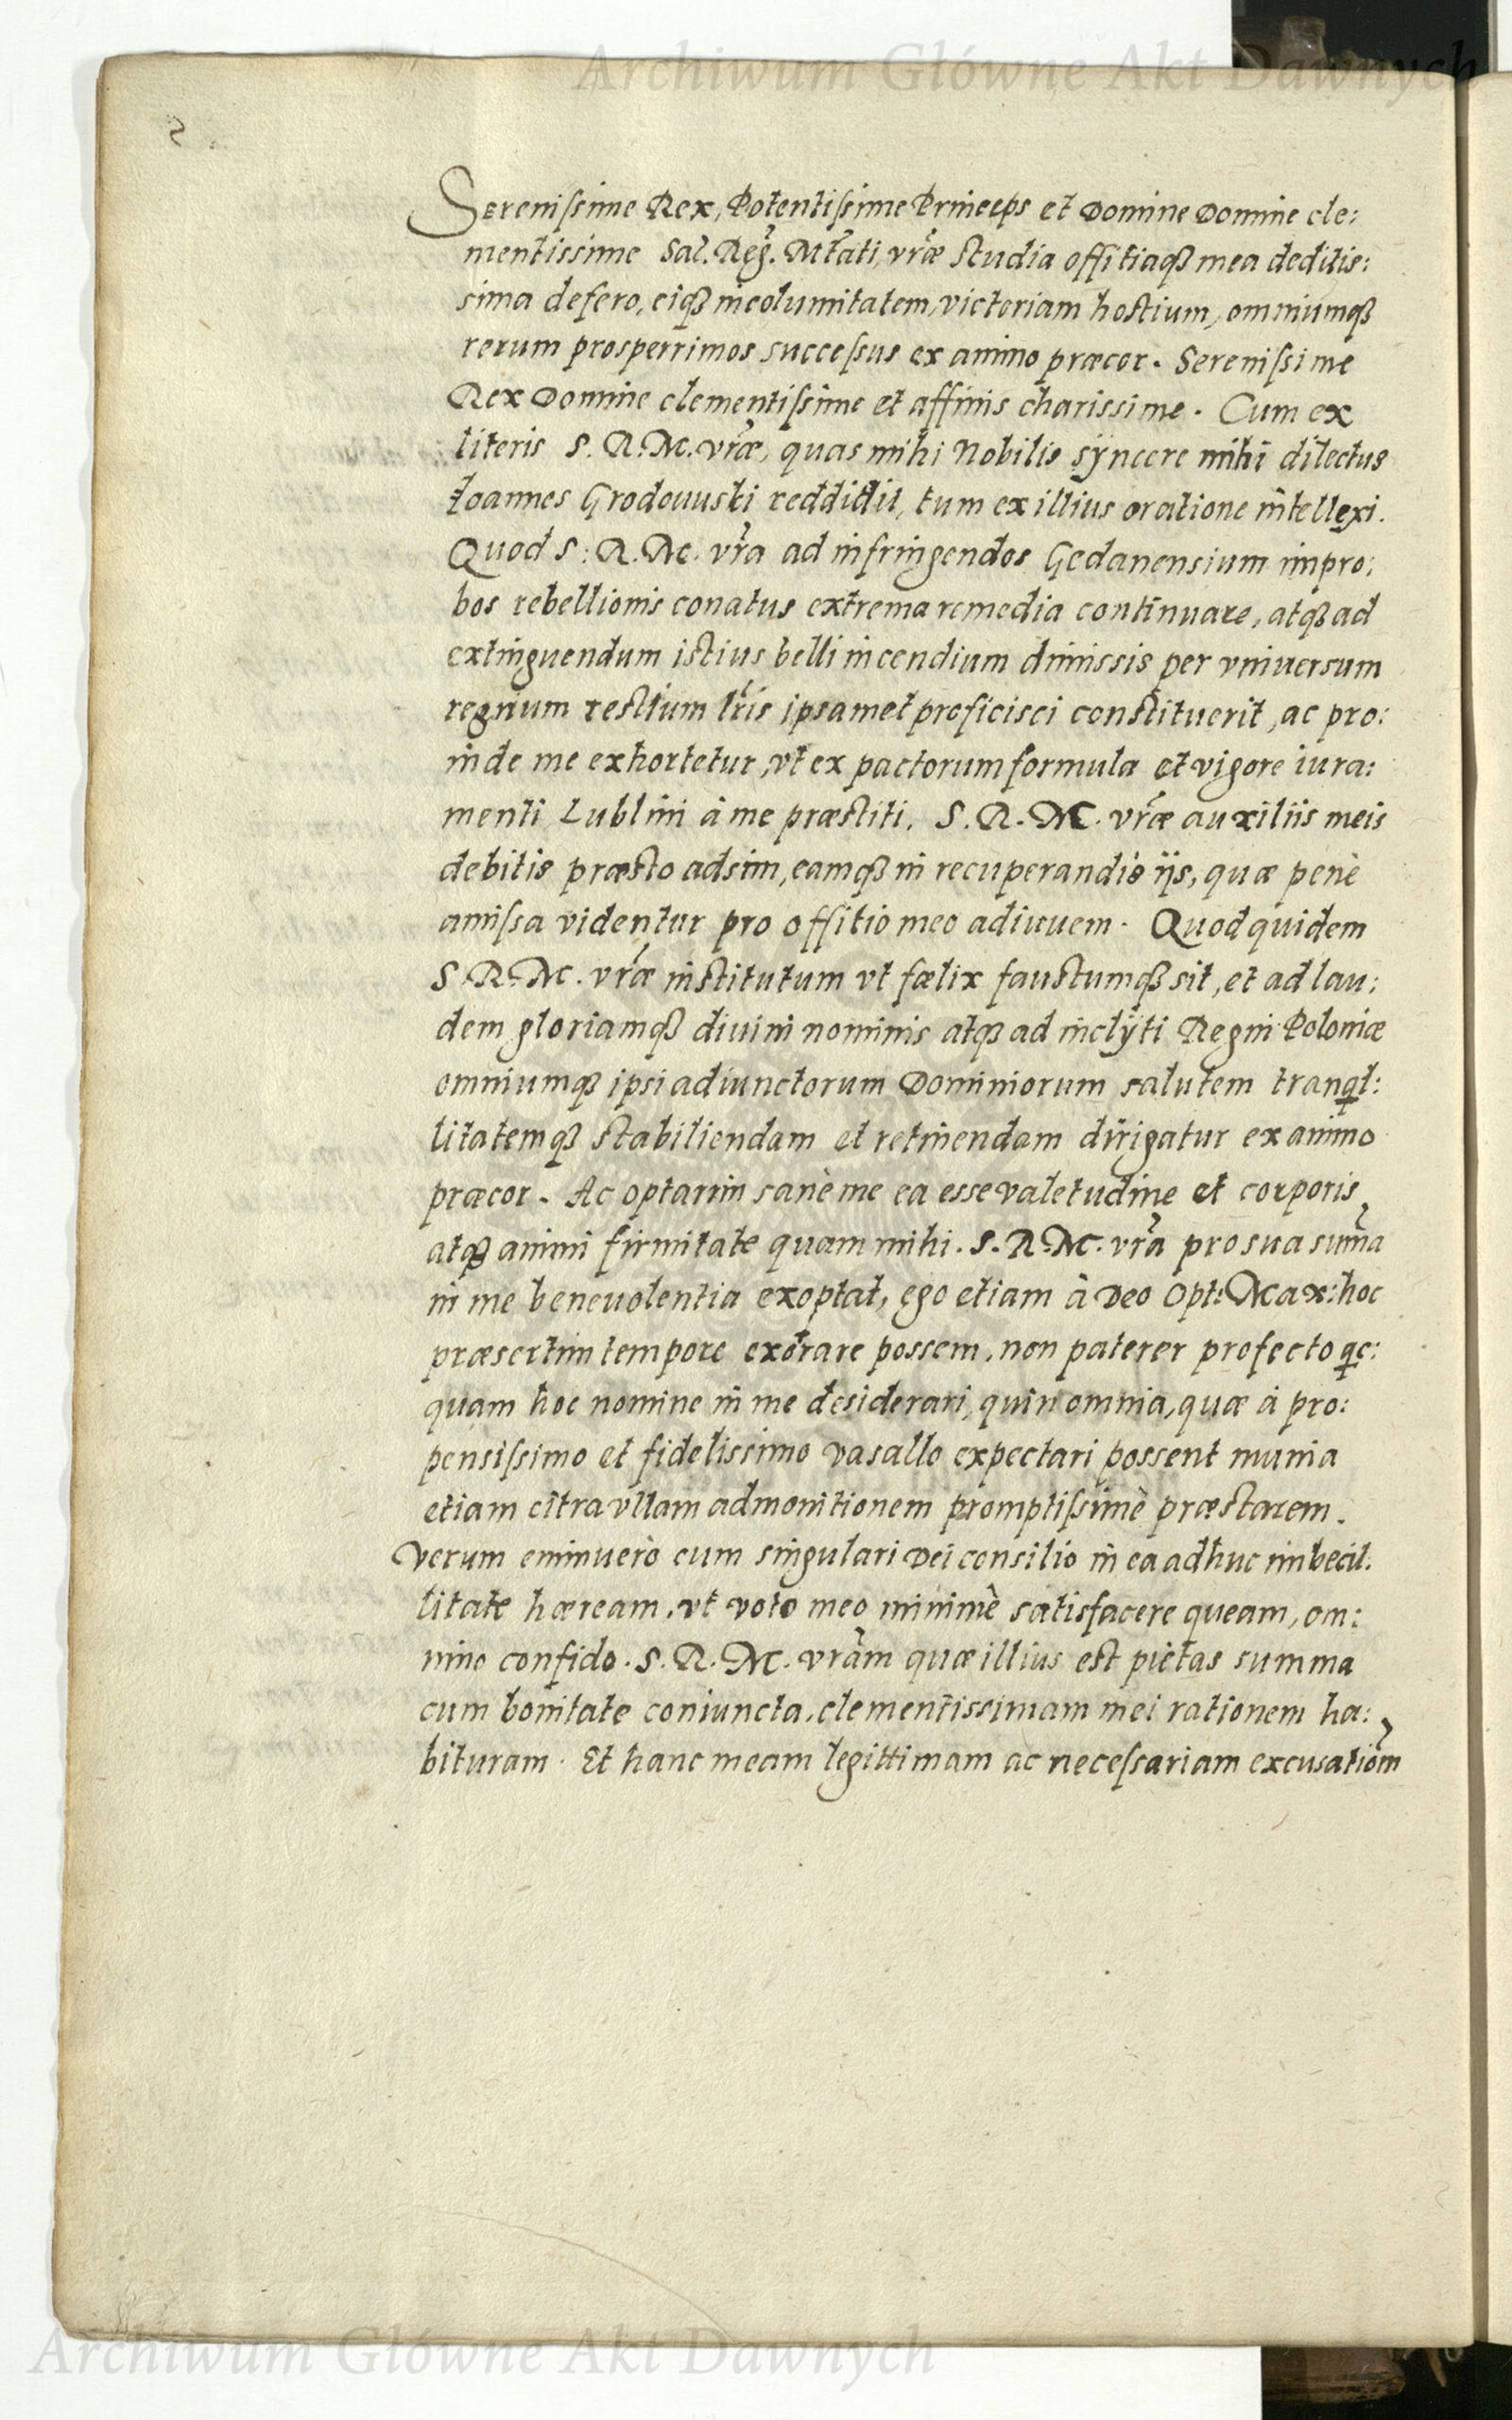 Archiwum Główne Akt Dawnych
2
Serenissime Rex, Potentissime Princeps et Domine Domine cle:
mentissime Sac. Reg. Mtati, vræ studia offitiaq3 mea deditis:
sima defero, eiq3 incolumitatem, victoriam hostium, omniumq3
rerum prosperrimos successus ex animo præcor. Serenissime
Rex Domine clementissime et affinis charissime. Cum ex
literis S. R. M. vræ, quas mihi Nobilis syncere mihi dilectus
Ioannes Grodouuski reddidit, tum ex illius oratione intellexi.
Quod S: R. M. vra ad infringendos Gedanensium impro:
bos rebellionis conatus extrema remedia continuare, atq3 ad
extinguendum istius belli incendium dimissis per vniuersum
regnum restium lris ipsamet proficisci constituerit, ac pro:
inde me exhortetur, vt ex pactorum formula et vigore iura:
menti Lublini à me præstiti, S. R. M. vræ auxiliis meis
debitis præsto adsim, eamq3 in recuperandis ijs, quæ penè
amissa videntur pro offitio meo adiuuem. Quod quidem
S. R. M. vræ institutum vt fœlix faustumq3 sit, et ad lau:
dem gloriamq3 diuini nominis atq3 ad inclÿti Regni Poloniæ
omniumq3 ipsi adiunctorum Dominiorum salutem tranql:
litatemq3 stabiliendam et retinendam dirigatur ex animo
præcor. Ac optarim sanè me ea esse valetudine et corporis
atq3 animi firmitate quam mihi. S. R. M. vra pro sua suma
in me beneuolentia exoptat, ego etiam à Deo Opt: Max: hoc
præsertim tempore exorare possem, non paterer profecto qc:
quam hoc nomine in me desiderari, quin omnia, quæ à pro:
pensissimo et fidelissimo vasallo expectari possent munia
etiam citra vllam admonitionem promptissimè præstarem.
Verum enimuerò cum singulari Dei consilio in ea adhuc imbecil.
litate hæream, vt voto meo minimè satisfacere queam, om:
nino confido. S. R. M. vram quæ illius est pietas summa
cum bonitate coniuncta, clementissimam mei rationem ha:
bituram. Et hanc meam legittimam ac necessariam excusatiom
Archiwum Główne Akt Dawnych